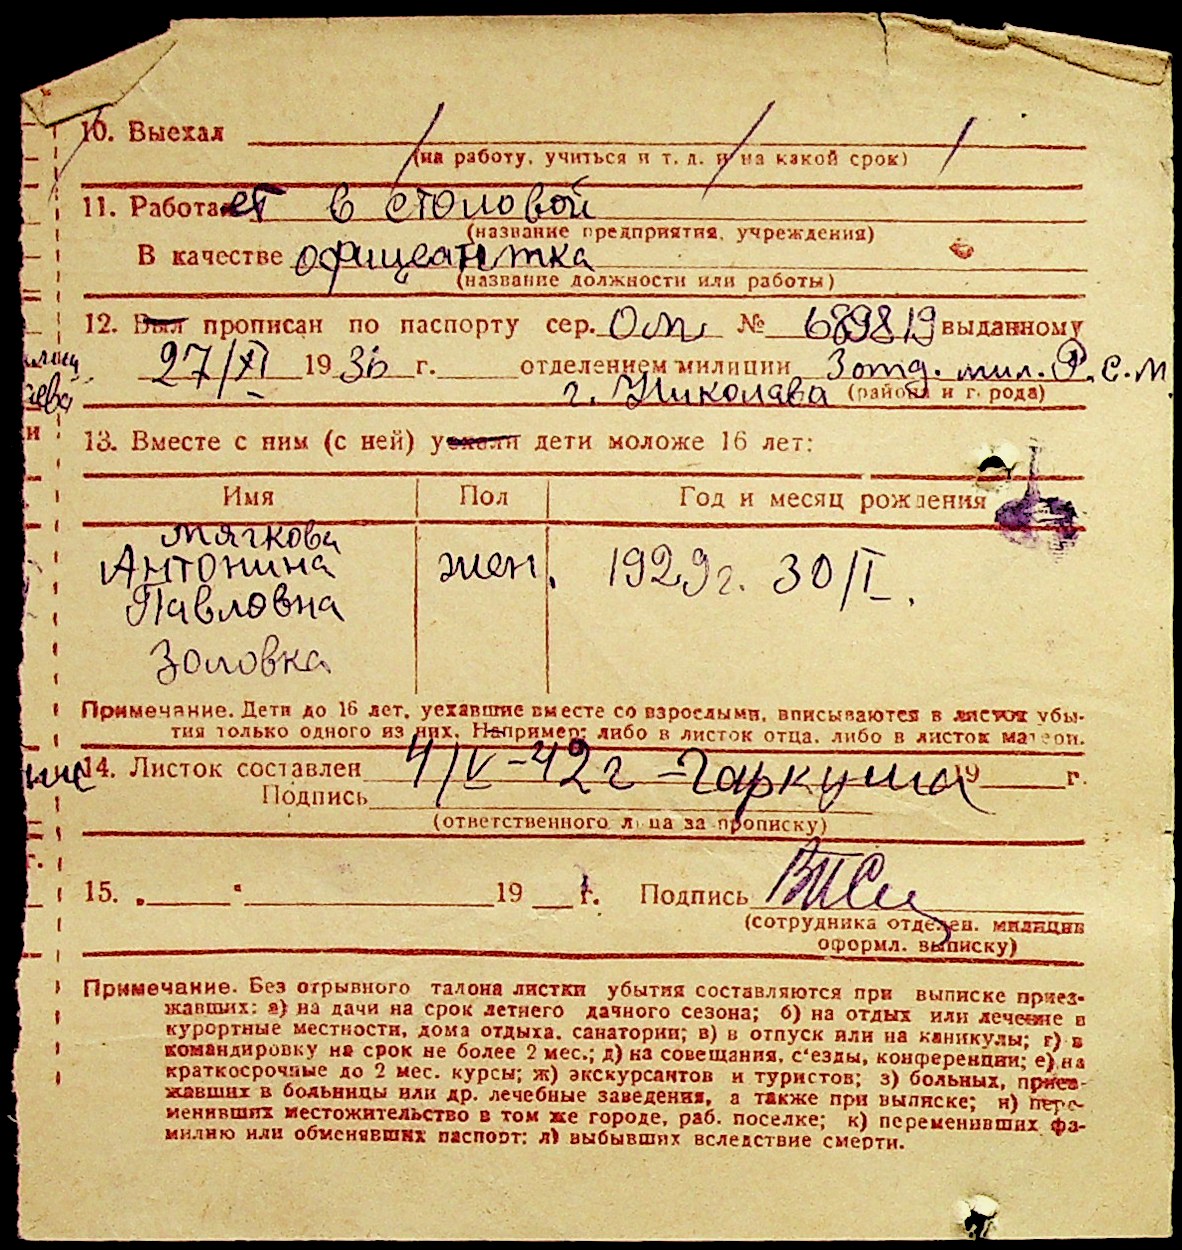 10. Выехал
(на работу, учиться и т. д. и на какой срок)
11. Работает в столовой
(название предприятия, учреждения)
В качестве офицеантка
(название должности или работы)
12. Был прописан по паспорту сер. Ом № 689819 выданному
27/XI 1936 г. отделением милиции 3 отд. мил. Р.С.М
г. Николава (района и города)
13. Вместе с ним (с ней) уехали дети моложе 16 лет:
Имя Пол Год и месяц рождения
Мягкова
Антонина жен. 1929 г. 30/I.
Павловна
Золовка
Примечание. Дети до 16 лет, уехавшие вместе со взрослыми, вписываются в листок убы-
тия только одного из них. Например: либо в листок отца, либо в листок матери.
14. Листок составлен 4/IV-42 г - Гаркуша 19 г.
Подпись
(ответственного лица за прописку)
15. „ “ 19 г. Подпись
(сотрудника отделен. милиции
оформл. выписку)
Примечание. Без отрывного талона листки убытия составляются при выписке приез-
жавших: а) на дачи на срок летнего дачного сезона; б) на отдых или лечение в
курортные местности, дома отдыха, санатории; в) в отпуск или на каникулы; г) в
командировку на срок не более 2 мес.; д) на совещания, с'езды, конференции; е) на
краткосрочные до 2 мес. курсы; ж) экскурсантов и туристов; з) больных, приез-
жавших в больницы или др. лечебные заведения, а также при выписке; и) пере-
менивших местожительство в том же городе, раб. поселке; к) переменивших фа-
милию или обменявших паспорт; л) выбывших вследствие смерти.